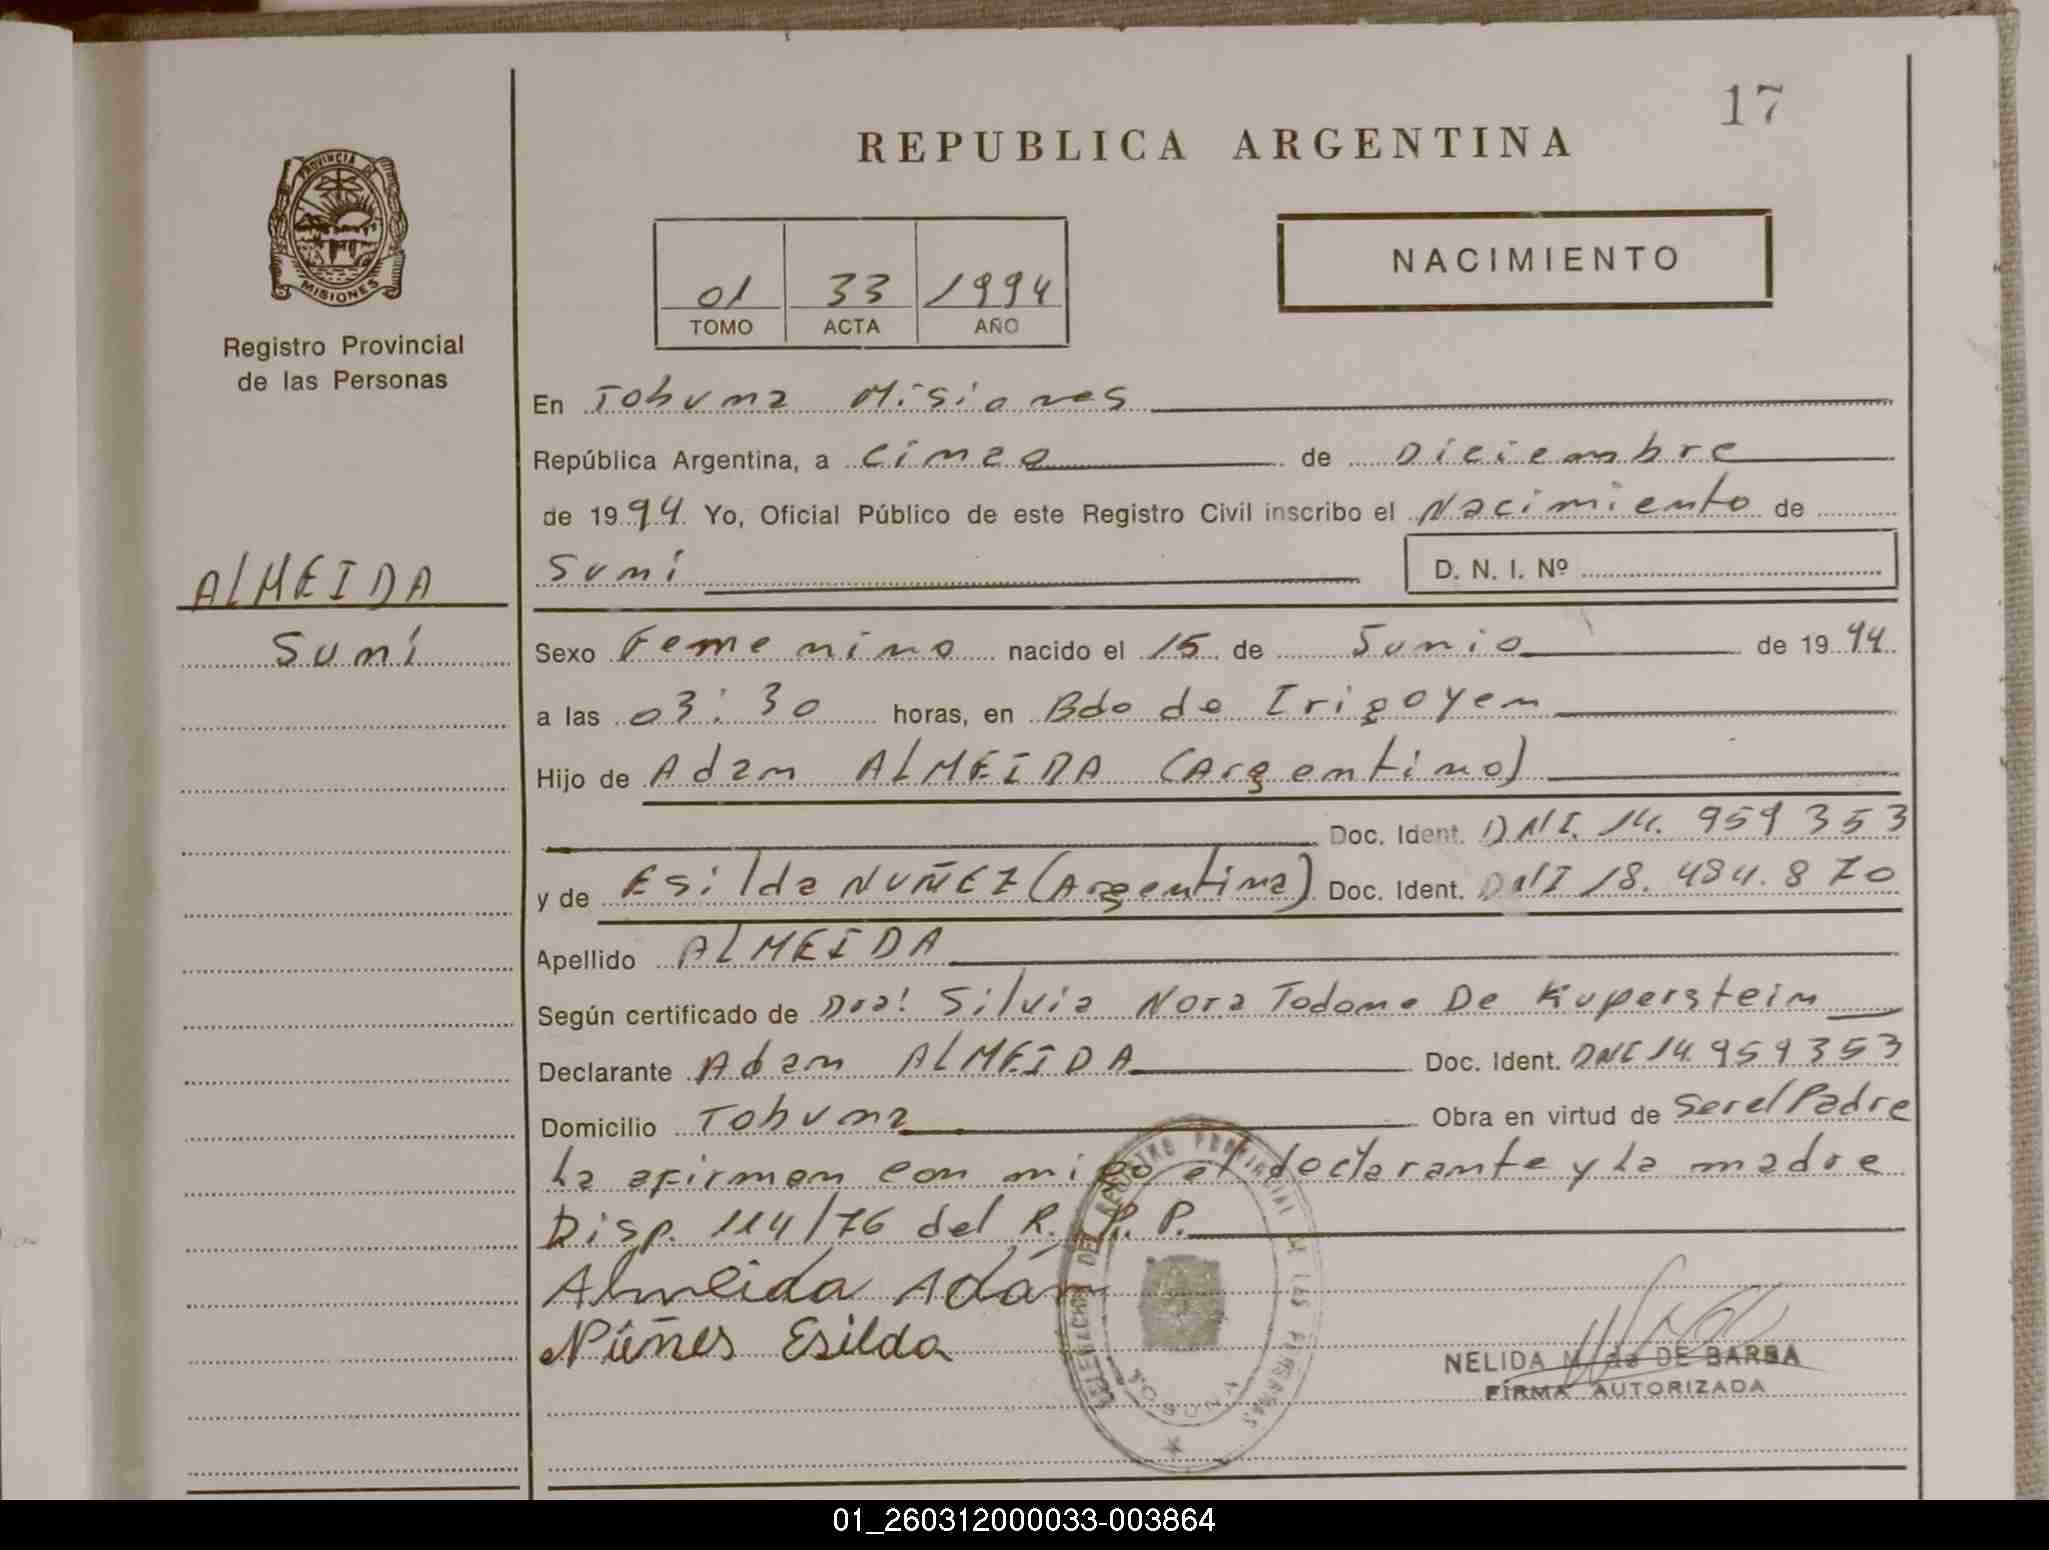 17
REPUBLICA ARGENTINA
PROVINCIA DE
MISIONES
Registro Provincial
de las Personas
NACIMIENTO
01 33 1994
TOMO ACTA AÑO
En Tobuna Misiones
República Argentina, a cinco de Diciembre
de 1994 Yo, Oficial Público de este Registro Civil inscribo el Nacimiento de
Suni D. N. I. Nº
ALMEIDA
Suni
Sexo Femenino nacido el 15 de Junio de 1994
a las 03:30 horas, en Bdo de Irigoyen
Hijo de Adan ALMEIDA (Argentino)
Doc. Ident. DNI. 14. 959 353
y de Esilda NUÑEZ (Argentina) Doc. Ident. DNI 18. 484. 870
Apellido ALMEIDA
Según certificado de Dra: Silvia Nora Todone De Kuperstein
Declarante Adan ALMEIDA Doc. Ident. DNI 14. 959 353
Domicilio Tobuna Obra en virtud de Ser el Padre
La afirman con migo el declarante y La madre
Disp. 114/76 del R. P. P.
Almeida Adán
Núñes Esilda
DELEGACION DEL REGISTRO PROVINCIAL DE LAS PERSONAS
TOBUNA
NELIDA M. de DE BARBA
FIRMA AUTORIZADA
01_260312000033-003864